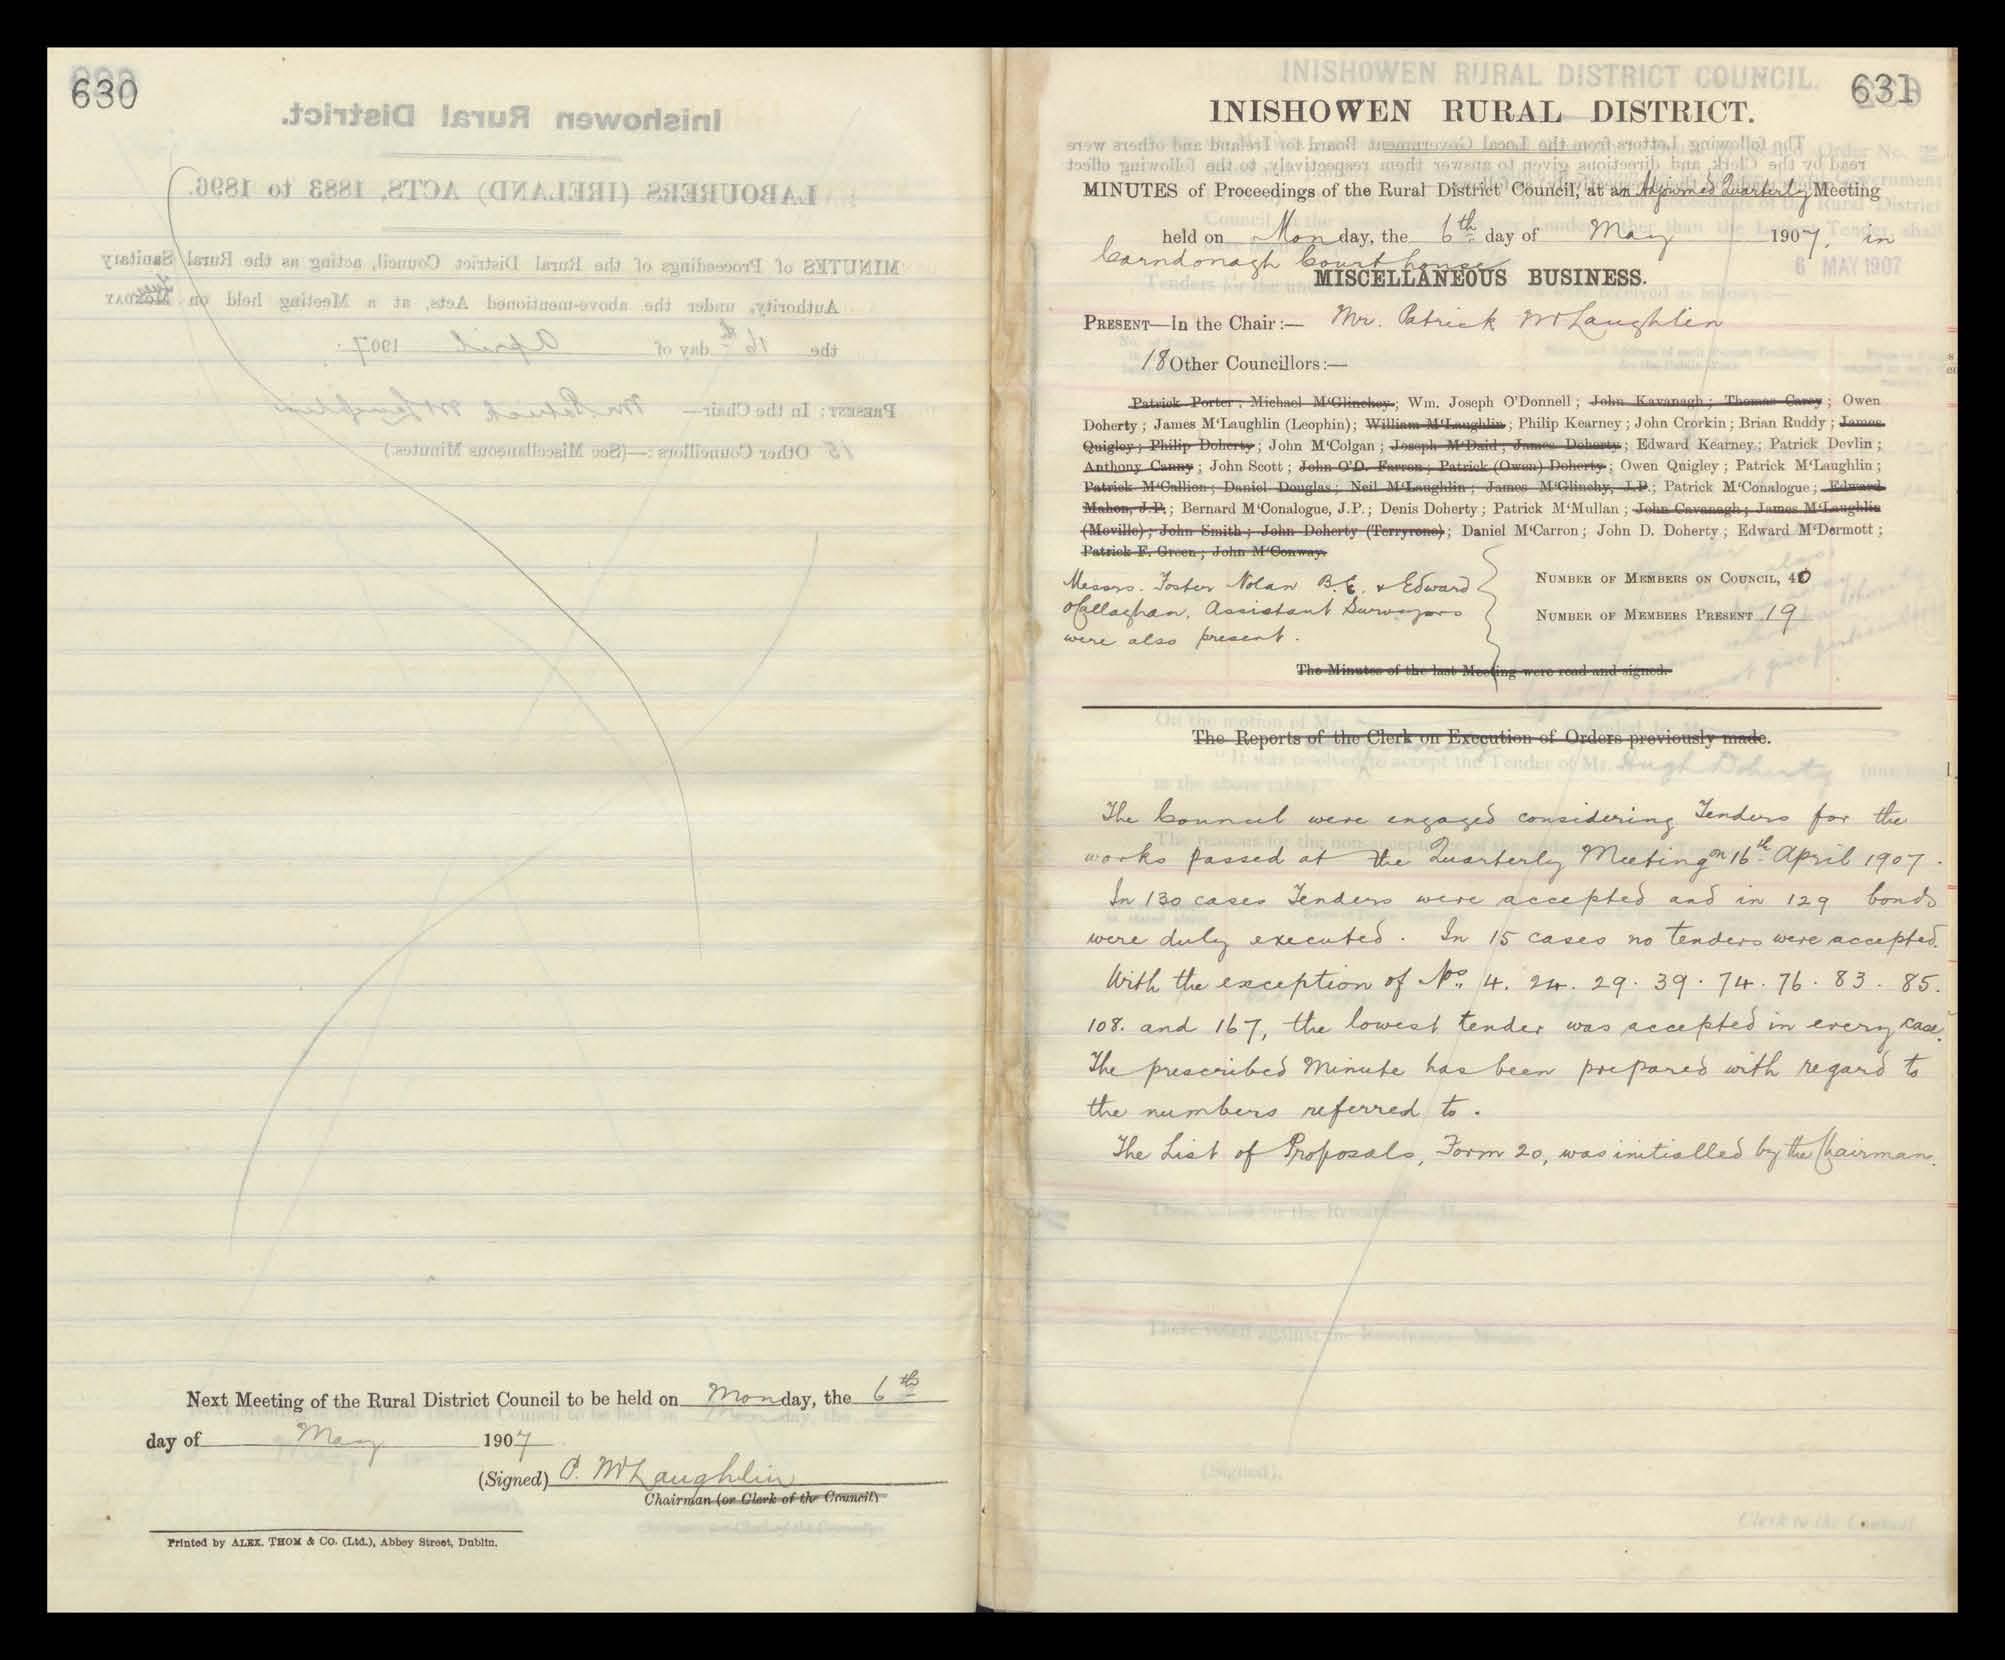 630
Next Meeting of the Rural District Council to be held on Monday, the 6th
day of May 1907
(Signed) P. McLaughlin
Chairman (or Clerk of the Council)
Printed by ALEX. THOM & CO. (Ltd.), Abbey Street, Dublin.
631
INISHOWEN RURAL DISTRICT COUNCIL.
INISHOWEN RURAL DISTRICT.
MINUTES of Proceedings of the Rural District Council, at an Adjourned Quarterly Meeting
held on Monday, the 6th day of May 1907, in
Carndonagh Courthouse
6 MAY 1907
MISCELLANEOUS BUSINESS.
PRESENT—In the Chair:— Mr. Patrick McLaughlin
18 Other Councillors:—
Patrick Porter; Michael M'Glinchey; Wm. Joseph O'Donnell; John Kavanagh; Thomas Carey; Owen
Doherty; James M'Laughlin (Leophin); William M'Laughlin; Philip Kearney; John Crorkin; Brian Ruddy; James
Quigley; Philip Doherty; John M'Colgan; Joseph M'Daid; James Doherty; Edward Kearney; Patrick Devlin;
Anthony Canny; John Scott; John O'D. Farren; Patrick (Owen) Doherty; Owen Quigley; Patrick M'Laughlin;
Patrick M'Callion; Daniel Douglas; Neil M'Laughlin; James M'Glinchy, J.P.; Patrick M'Conalogue; Edward
Mahon, J.P.; Bernard M'Conalogue, J.P.; Denis Doherty; Patrick M'Mullan; John Cavanagh; James M'Laughlin
(Moville); John Smith; John Doherty (Terryrone); Daniel M'Carron; John D. Doherty; Edward M'Dermott;
Patrick F. Green; John M'Conway.
Messrs. Foster Nolan B.E. & Edward
O'Callaghan, Assistant Surveyors
were also present.
NUMBER OF MEMBERS ON COUNCIL, 40
NUMBER OF MEMBERS PRESENT 19
The Minutes of the last Meeting were read and signed.
The Reports of the Clerk on Execution of Orders previously made.
The Council were engaged considering Tenders for the
works passed at the Quarterly Meeting on 16th April 1907.
In 130 cases Tenders were accepted and in 129 bonds
were duly executed. In 15 cases no tenders were accepted.
With the exception of Nos. 4. 24. 29. 39. 74. 76. 83. 85.
108. and 167, the lowest tender was accepted in every case.
The prescribed Minute has been prepared with regard to
the numbers referred to.
The List of Proposals, Form 20, was initialled by the Chairman.